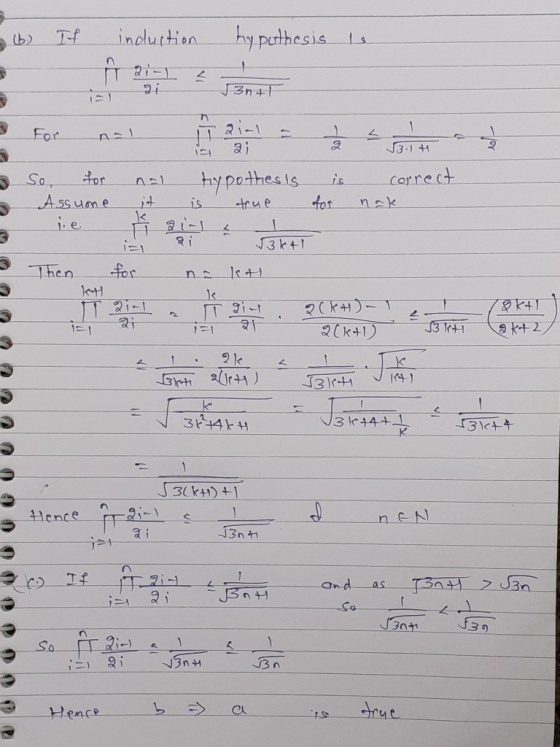 (b) If induction hypothesis is
∏_{i=1}^{n} (2i-1)/(2i) ≤ 1/√(3n+1)
For n=1 ∏_{i=1}^{n} (2i-1)/(2i) = 1/2 ≤ 1/√(3·1+1) = 1/2
So, for n=1 hypothesis is correct
Assume it is true for n=k
i.e ∏_{i=1}^{k} (2i-1)/(2i) ≤ 1/√(3k+1)
Then for n = k+1
∏_{i=1}^{k+1} (2i-1)/(2i) = ∏_{i=1}^{k} (2i-1)/(2i) · (2(k+1)-1)/(2(k+1)) ≤ 1/√(3k+1) ((2k+1)/(2k+2))
≤ 1/√(3k+1) · 2k/(2(k+1)) ≤ 1/√(3k+1) · √(k/(k+1))
= √(k/(3k²+4k+1)) = √(1/(3k+4+1/k)) ≤ 1/√(3k+4)
= 1/√(3(k+1)+1)
Hence ∏_{i=1}^{n} (2i-1)/(2i) ≤ 1/√(3n+1) n∈N
(c) If ∏_{i=1}^{n} (2i-1)/(2i) ≤ 1/√(3n+1) and as √(3n+1) > √(3n)
so 1/√(3n+1) < 1/√(3n)
So ∏_{i=1}^{n} (2i-1)/(2i) ≤ 1/√(3n+1) ≤ 1/√(3n)
Hence b ⇒ a is true